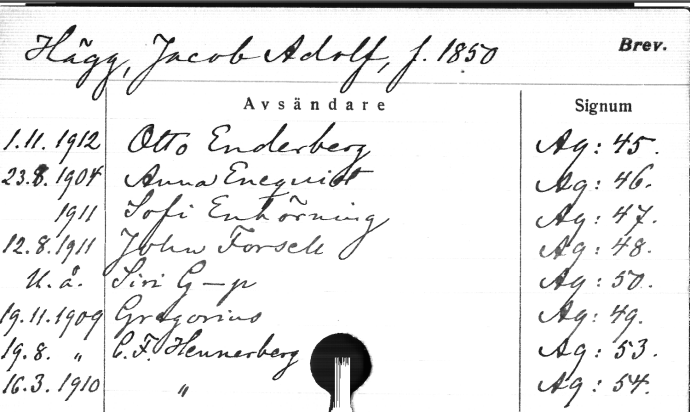 Hägg, Jacob Adolf, f. 1850 Brev.
Avsändare Signum
1.11.1912 Otto Enderberg Ag: 45.
23.8.1904 Anna Enequist Ag: 46.
1911 Sofi Enhörning Ag: 47.
12.8.1911 John Forsell Ag: 48.
U.å. Siri G-p Ag: 50.
19.11.1909 Gregorius Ag: 49.
19.8. „ C.F. Hennerberg Ag: 53.
16.3.1910 „ Ag: 54.